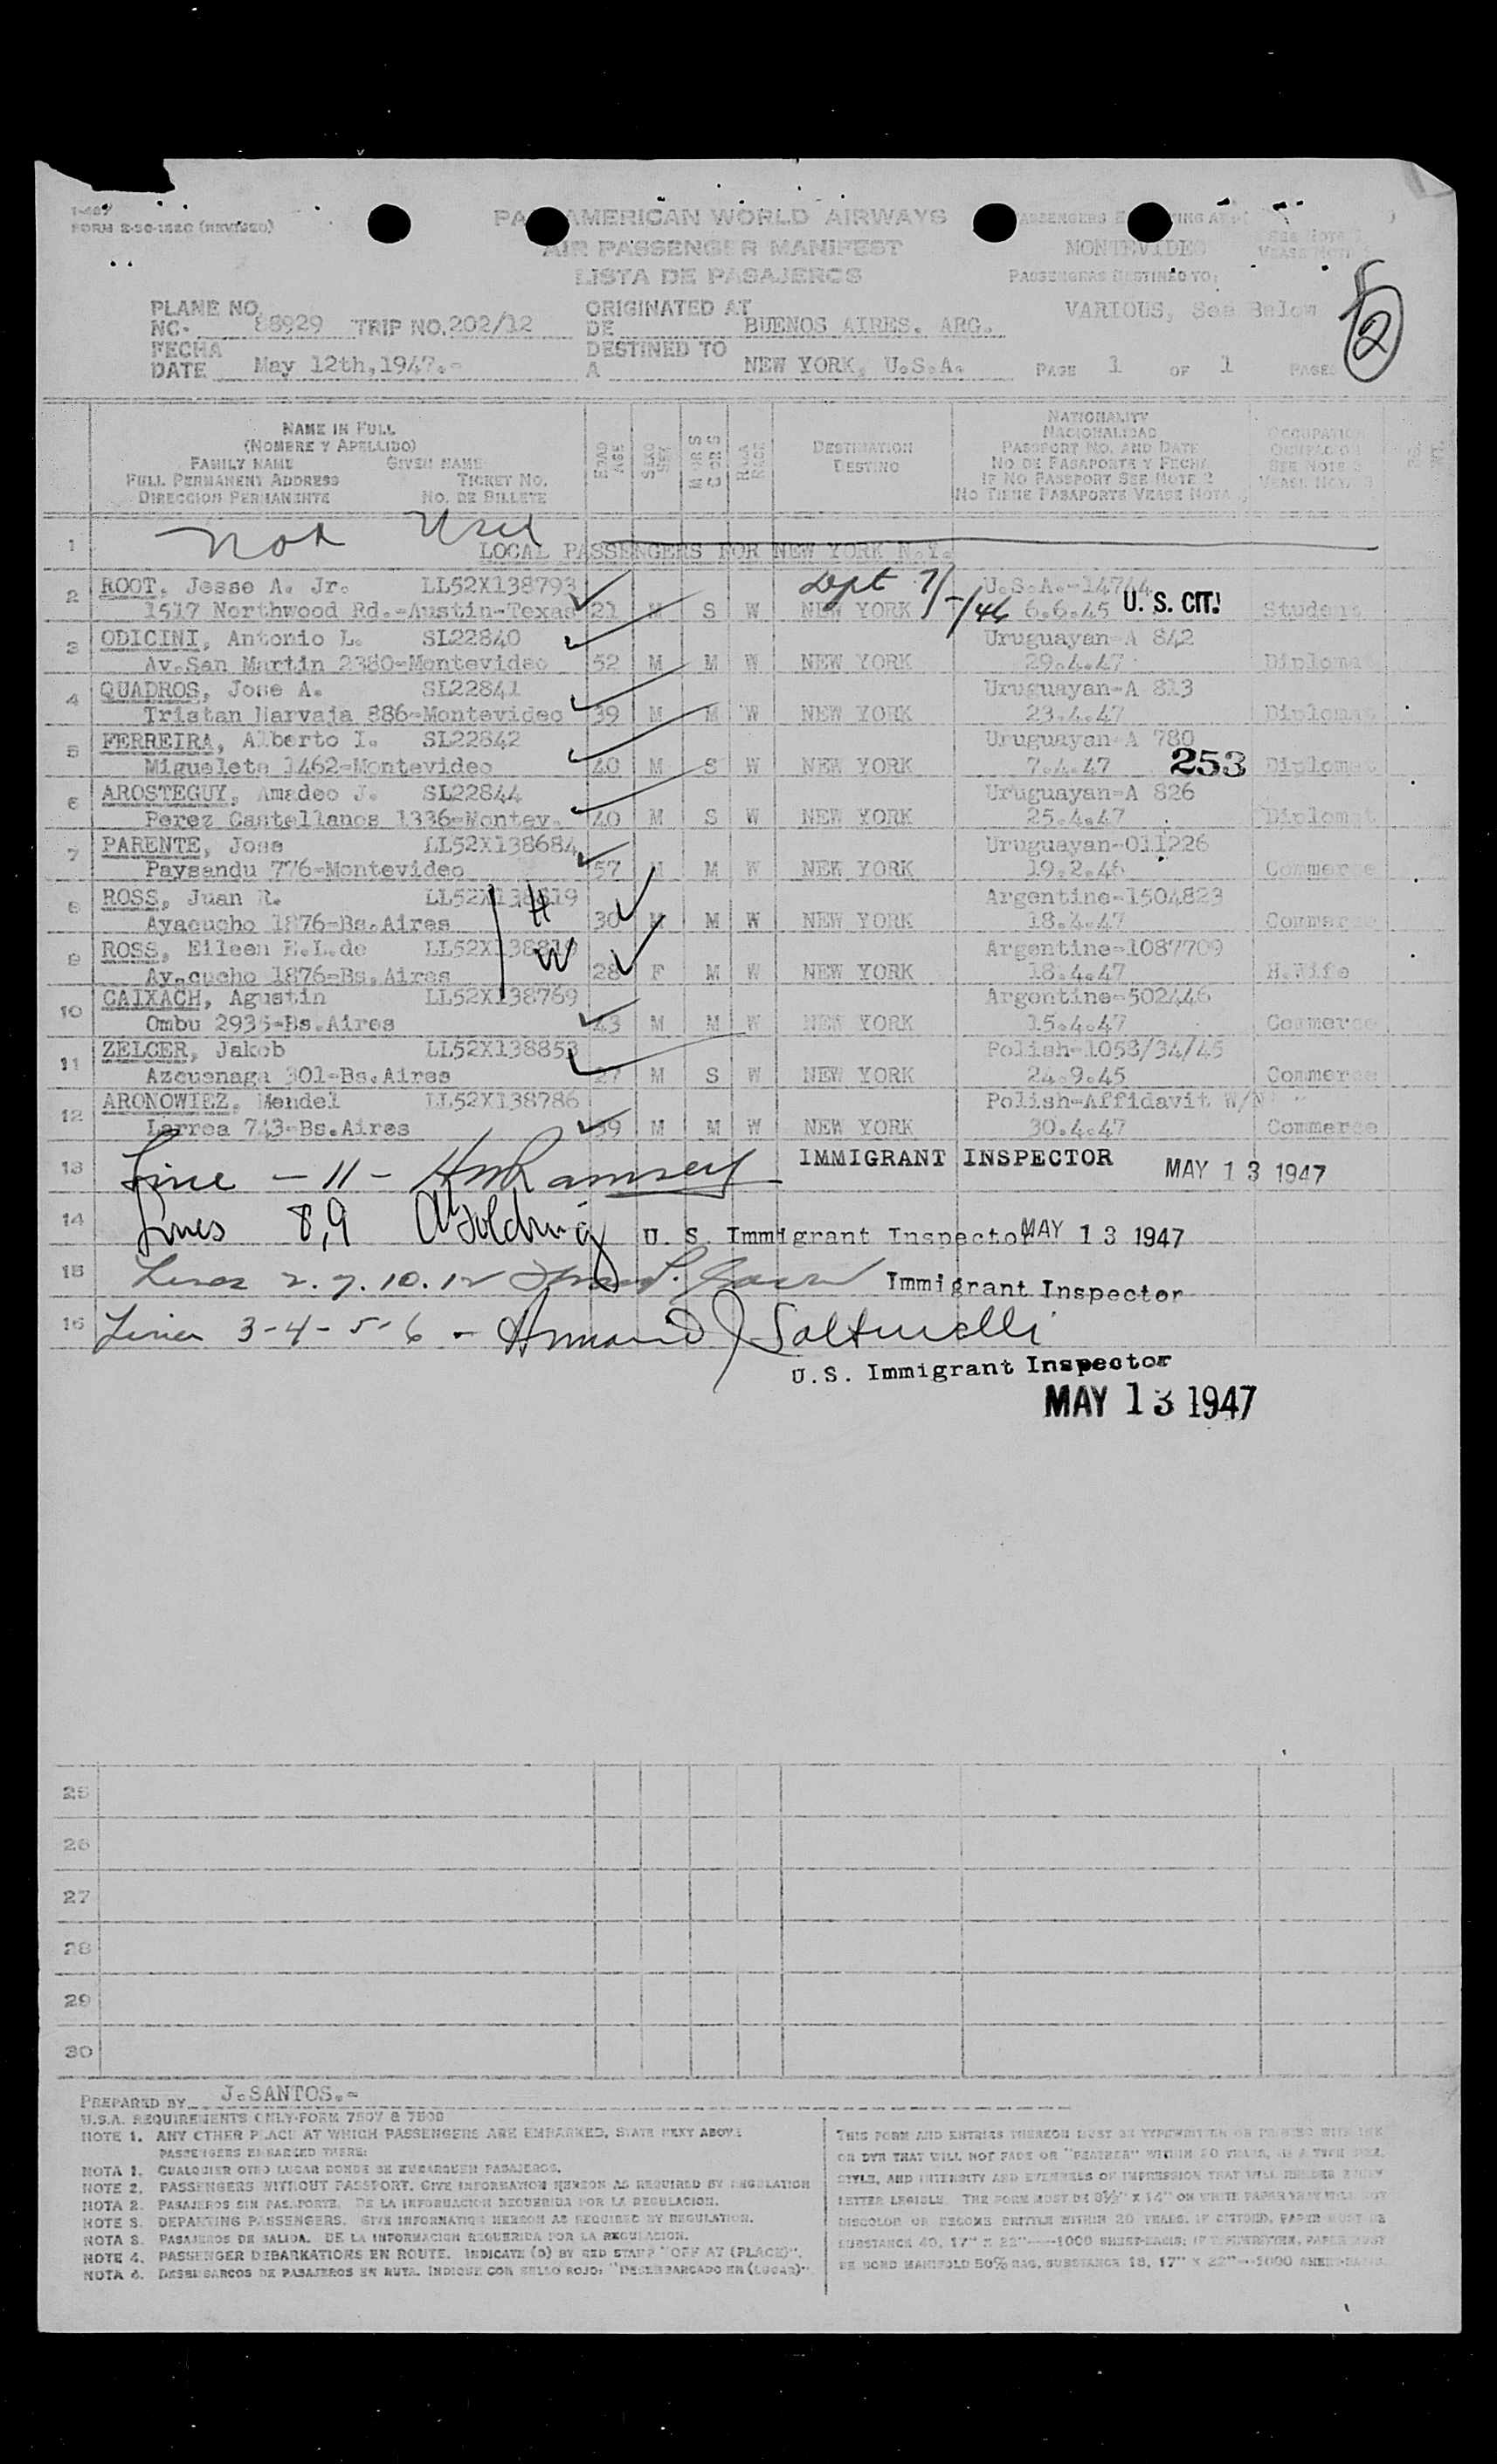 I-467
FORM 2-50-152C (REVISED)
PAN AMERICAN WORLD AIRWAYS
AIR PASSENGER MANIFEST
LISTA DE PASAJEROS
MONTEVIDEO
PASSENGERS DESTINED TO:
VARIOUS, See Below
2
PLANE NO.
NC- 88929 TRIP NO. 202/12
ORIGINATED AT
DE BUENOS AIRES. ARG.
FECHA
DATE May 12th, 1947.-
DESTINED TO
A NEW YORK, U.S.A.
PAGE 1 OF 1 PAGES
NAME IN FULL
(NOMBRE Y APELLIDO)
FAMILY NAME GIVEN NAME
FULL PERMANENT ADDRESS TICKET NO.
DIRECCION PERMANENTE NO. DE BILLETE
EDAD AGE
SEXO SEX
RAZA RACE
DESTINATION
DESTINO
NATIONALITY
NACIONALIDAD
PASSPORT NO. AND DATE
NO DE PASAPORTE Y FECHA
IF NO PASSPORT SEE NOTE 2
NO TIENE PASAPORTE VEASE NOTA
OCCUPATION
1 Not Used
LOCAL PASSENGERS FOR NEW YORK N.Y.
2 ROOT, Jesse A. Jr. LL52X138793 Dept 7/-/46 U.S.A.-14744
1517 Northwood Rd.-Austin-Texas 21 M S W NEW YORK 6.6.45 U. S. CIT! Student
3 ODICINI, Antonio L. SL22840 Uruguayan-A 842
Av.San Martin 2380-Montevideo 52 M M W NEW YORK 29.4.47 Diplomat
4 QUADROS, Jose A. SL22841 Uruguayan-A 813
Tristan Narvaja 886-Montevideo 39 M M W NEW YORK 23.4.47 Diplomat
5 FERREIRA, Alberto I. SL22842 Uruguayan-A 780
Miguelete 1462-Montevideo 40 M S W NEW YORK 7.4.47 253 Diplomat
6 AROSTEGUY, Amadeo J. SL22844 Uruguayan-A 826
Perez Castellanos 1336-Montev. 40 M S W NEW YORK 25.4.47 Diplomat
7 PARENTE, Jose LL52X138684 Uruguayan-011226
Paysandu 776-Montevideo 57 M M W NEW YORK 19.2.46 Commerce
8 ROSS, Juan R. LL52X138819 H Argentine-1504823
Ayacucho 1876-Bs.Aires 30 M M W NEW YORK 18.4.47 Commerce
9 ROSS, Eileen E.L.de LL52X138819 W Argentine-1087709
Ay.cucho 1876-Bs.Aires 28 F M W NEW YORK 18.4.47 H.Wife
10 CAIXACH, Agustin LL52X138769 Argentine-502446
Ombu 2935-Bs.Aires 43 M M W NEW YORK 15.4.47 Commerce
11 ZELCER, Jakob LL52X138853 Polish-1058/34/45
Azcuenaga 301-Bs.Aires 27 M S W NEW YORK 24.9.45 Commerce
12 ARONOWIEZ, Mendel LL52X138786 Polish-Affidavit W/N
Larrea 743-Bs.Aires 39 M M W NEW YORK 30.4.47 Commerce
13 Line - 11 - HM Ramsey IMMIGRANT INSPECTOR MAY 13 1947
14 Lines 8,9 A Golding U. S. Immigrant Inspector MAY 13 1947
15 Lines 2.7.10.12 Immigrant Inspector
16 Lines 3-4-5-6 - Armand J Saltinelli
U.S. Immigrant Inspector
MAY 13 1947
25
26
27
28
29
30
PREPARED BY J.SANTOS.-
U.S.A. REQUIREMENTS ONLY-FORM 7507 & 7508
NOTE 1. ANY OTHER PLACE AT WHICH PASSENGERS ARE EMBARKED, STATE NEXT ABOVE
PASSENGERS EMBARKED THERE:
NOTA 1. CUALQUIER OTRO LUGAR DONDE SE EMBARQUEN PASAJEROS.
NOTE 2. PASSENGERS WITHOUT PASSPORT. GIVE INFORMATION HEREON AS REQUIRED BY REGULATION
NOTA 2. PASAJEROS SIN PASAPORTE. DE LA INFORMACION REQUERIDA POR LA REGULACION.
NOTE 3. DEPARTING PASSENGERS. GIVE INFORMATION HEREON AS REQUIRED BY REGULATION.
NOTA 3. PASAJEROS DE SALIDA. DE LA INFORMACION REQUERIDA POR LA REGULACION.
NOTE 4. PASSENGER DEBARKATIONS EN ROUTE. INDICATE (D) BY RED STAMP "OFF AT (PLACE)".
NOTA 4. DESEMBARCOS DE PASAJEROS EN RUTA. INDIQUE CON SELLO ROJO: "DESEMBARCADO EN (LUGAR)".
THIS FORM AND ENTRIES THEREON MUST BE TYPEWRITTEN OR PRINTED WITH INK
OR DYE THAT WILL NOT FADE OR "FEATHER" WITHIN 20 YEARS, IN A TYPE SIZE,
STYLE, AND INTENSITY AND EVENNESS OF IMPRESSION THAT WILL RENDER EVERY
LETTER LEGIBLE. THE FORM MUST BE 8½" X 14" ON WHITE PAPER THAT WILL NOT
DISCOLOR OR BECOME BRITTLE WITHIN 20 YEARS. IF DITTOED, PAPER MUST BE
SUBSTANCE 40, 17" X 22"----1000 SHEET-BASIS; IF TYPEWRITTEN, PAPER MUST
BE BOND MANIFOLD 50% RAG, SUBSTANCE 18, 17" X 22"--1000 SHEET-BASIS.